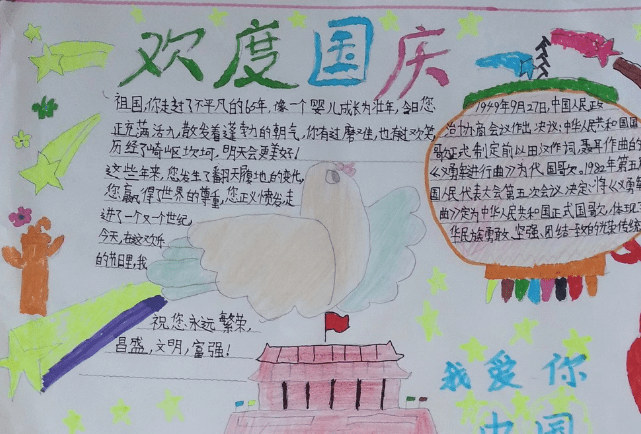 欢度国庆
祖国,你走过了不平凡的65年,像一个婴儿成长为壮年,今日您
正充满活力,散发着蓬勃的朝气,你有过磨难,也有过欢笑
历经了崎岖坎坷,明天会更美好!
这些年来,您发生了翻天覆地的变化,
您赢得世界的尊重,您正慷慨走
进了一个又一个世纪,
今天,在这欢乐
的节日里,我
祝您永远繁荣,
昌盛,文明,富强!
1949年9月27日,中国人民政
治协商会议作出决议:中华人民共和国国
歌正式制定前以田汉作词,聂耳作曲的
《义勇军进行曲》为代国歌。1982年第五届
国人民代表大会第五次会议决定:将《义勇军
曲》定为中华人民共和国正式国歌,体现了
华民族勇敢、坚强、团结一致的优秀传统
我爱你
中国